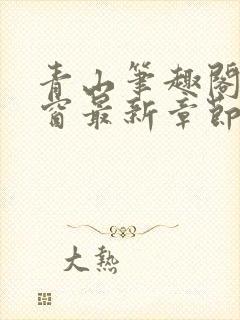 青山笔趣阁
窗最新章节
大熱